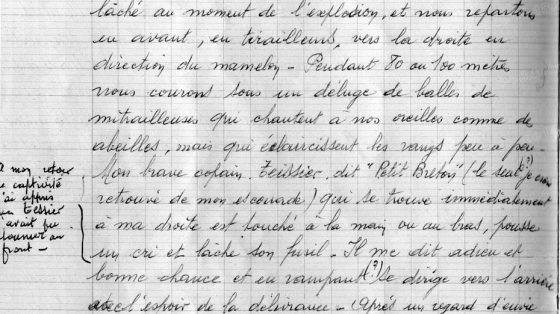 lâché au moment de l'explosion, et nous repartons
en avant, en tirailleurs, vers la droite en
direction du mamelon - Pendant 80 ou 100 mètres
nous courons sous un déluge de balles de
mitrailleuses qui chantent à nos oreilles comme de
abeilles, mais qui éclaircissent les rangs peu à peu -
Mon brave copain Teissier, dit "Petit Breton" (le seul (?) je crois
retrouvé de mon escouade) qui se trouve immédiatement
à ma droite est touché à la main ou au bras, pousse
un cri et lâche son fusil - Il me dit adieu et
bonne chance et en rampant (?) se dirige vers l'arrière
avec l'espoir de la délivrance - (Après un regard d'envie
mon retour
captivité
j'ai appris
Teissier
avait pu
retourner au
front -